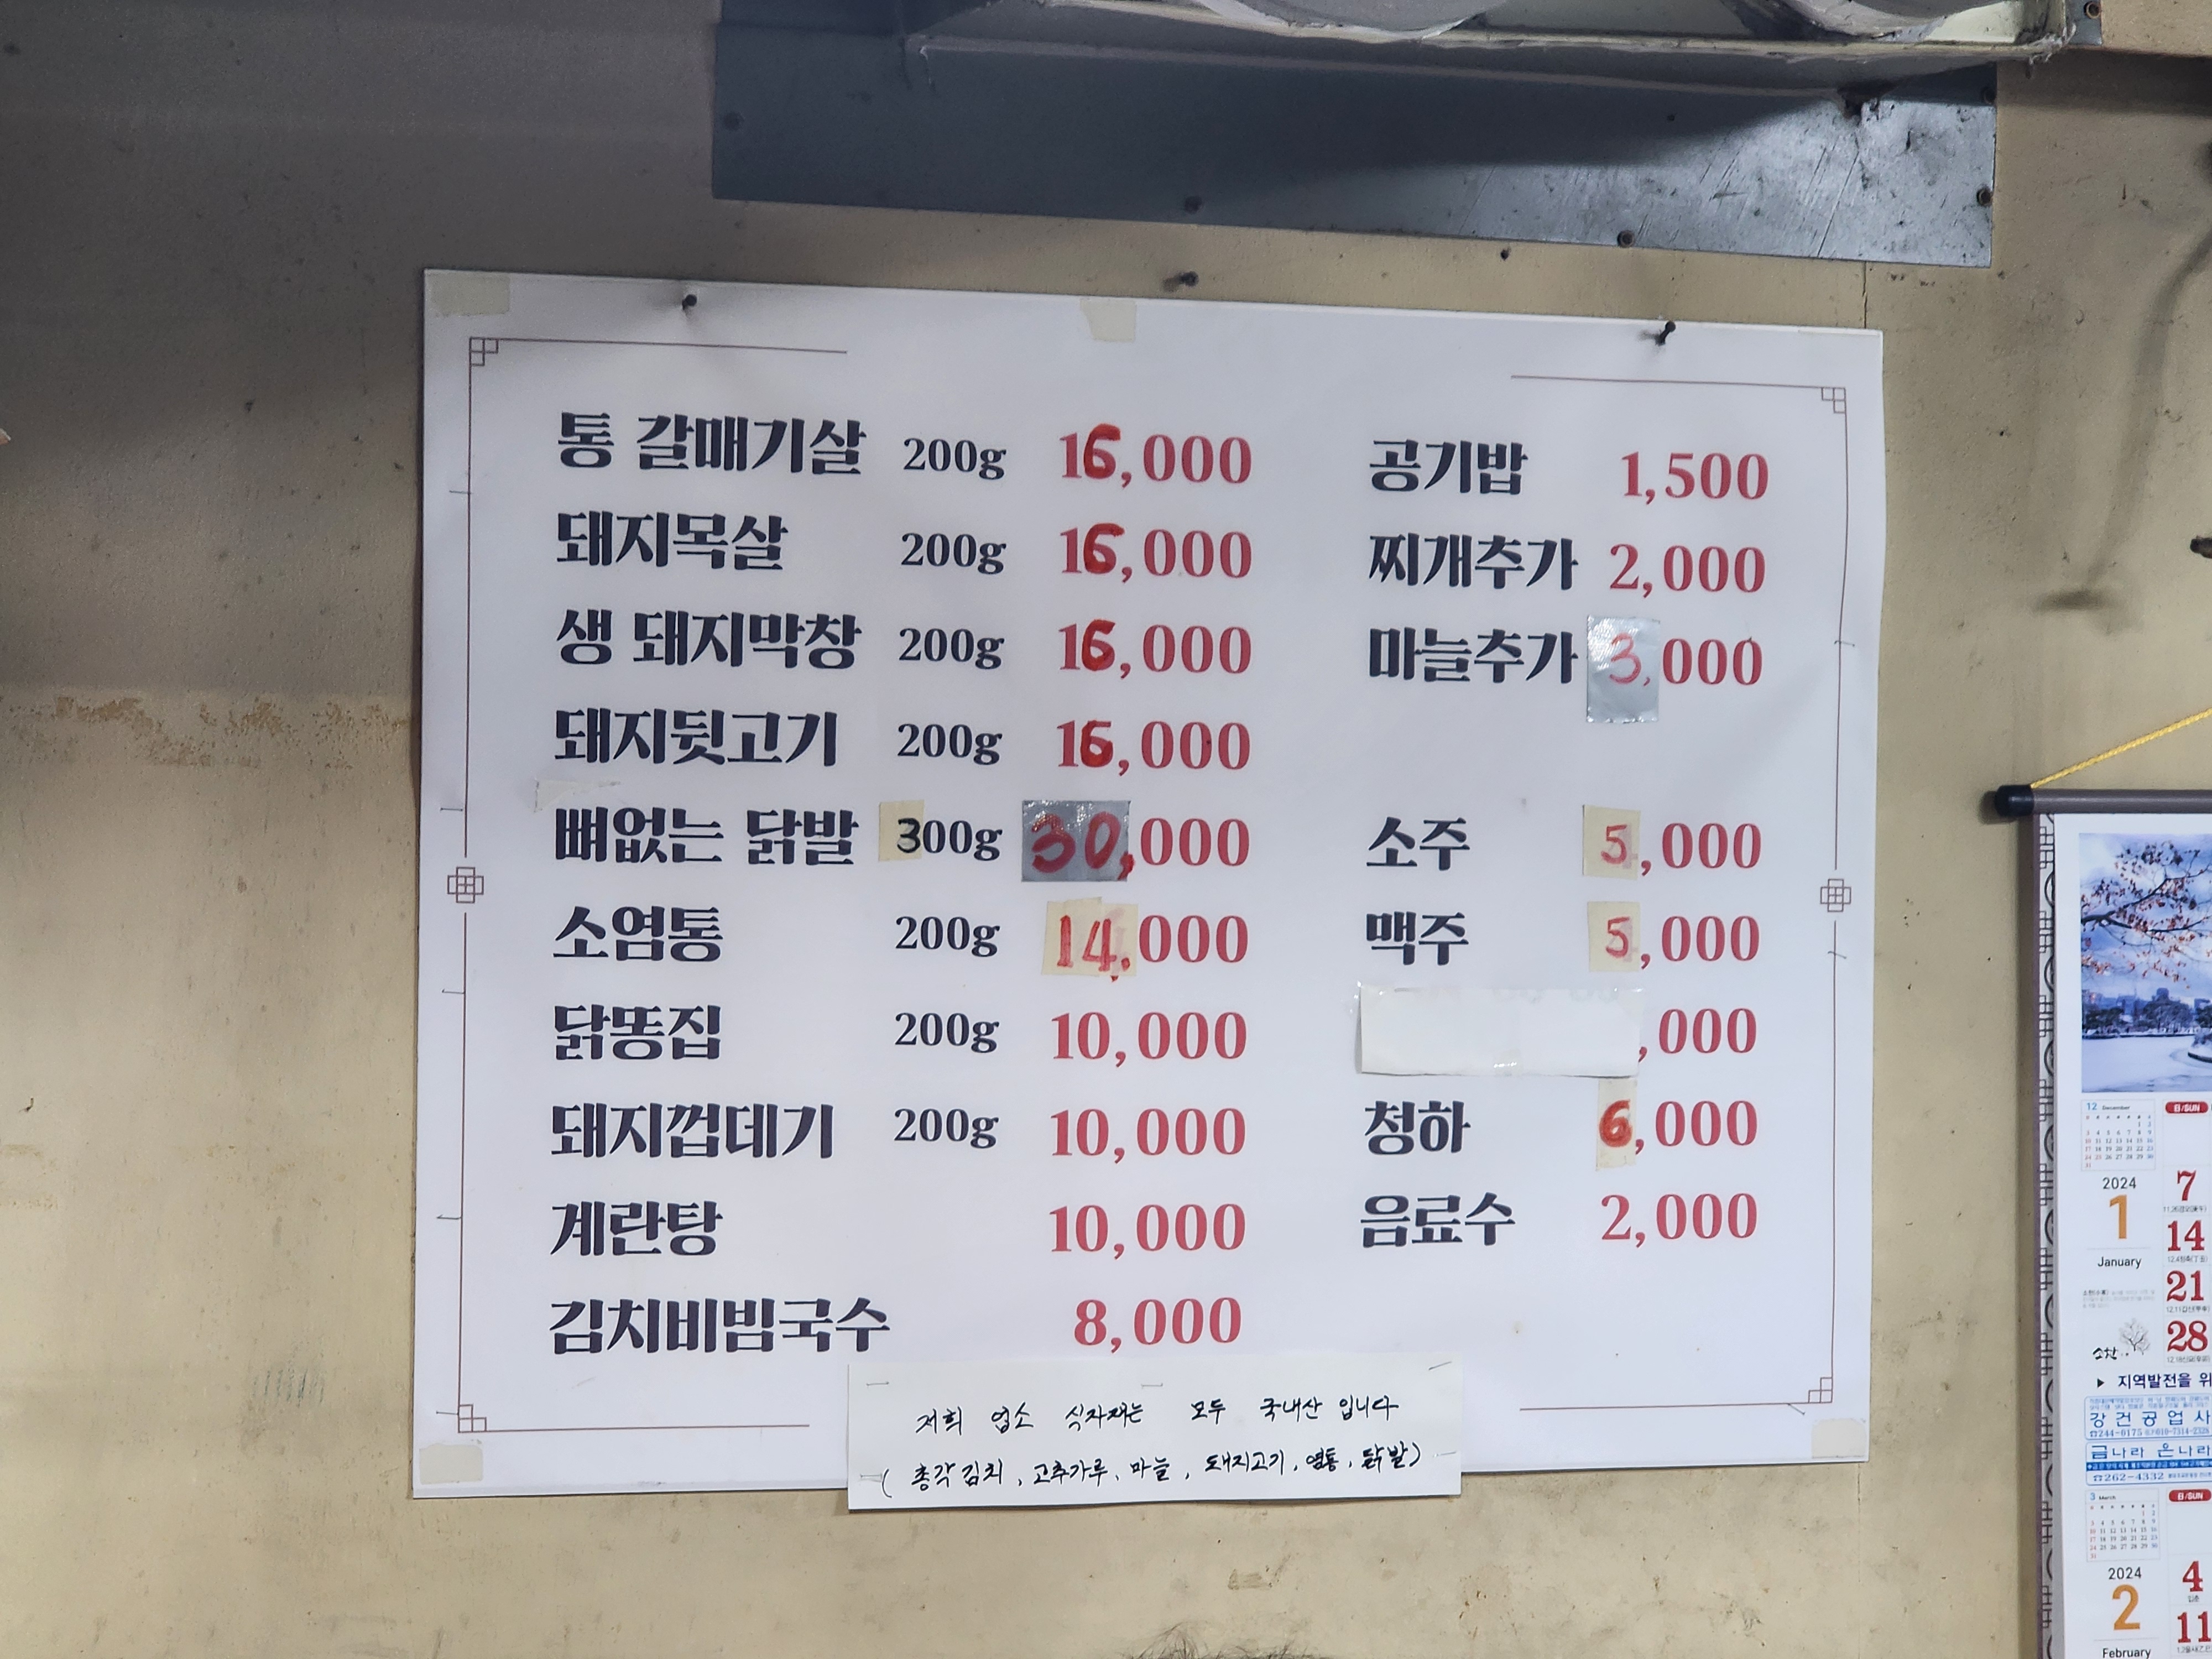 통 갈매기살 200g 16,000
돼지목살 200g 16,000
생 돼지막창 200g 16,000
돼지뒷고기 200g 16,000
뼈없는 닭발 300g 30,000
소염통 200g 14,000
닭똥집 200g 10,000
돼지껍데기 200g 10,000
계란탕 10,000
김치비빔국수 8,000
공기밥 1,500
찌개추가 2,000
마늘추가 3,000
소주 5,000
맥주 5,000
,000
청하 6,000
음료수 2,000
저희 업소 식자재는 모두 국내산 입니다
(총각김치, 고추가루, 마늘, 돼지고기, 염통, 닭발)
12 December
日/SUN
2024
1
January
7
14
21
28
▶ 지역발전을 위
강건공업사
☎244-0175
금나라 은나라
☎262-4332
3 March
日/SUN
2024
2
February
4
11